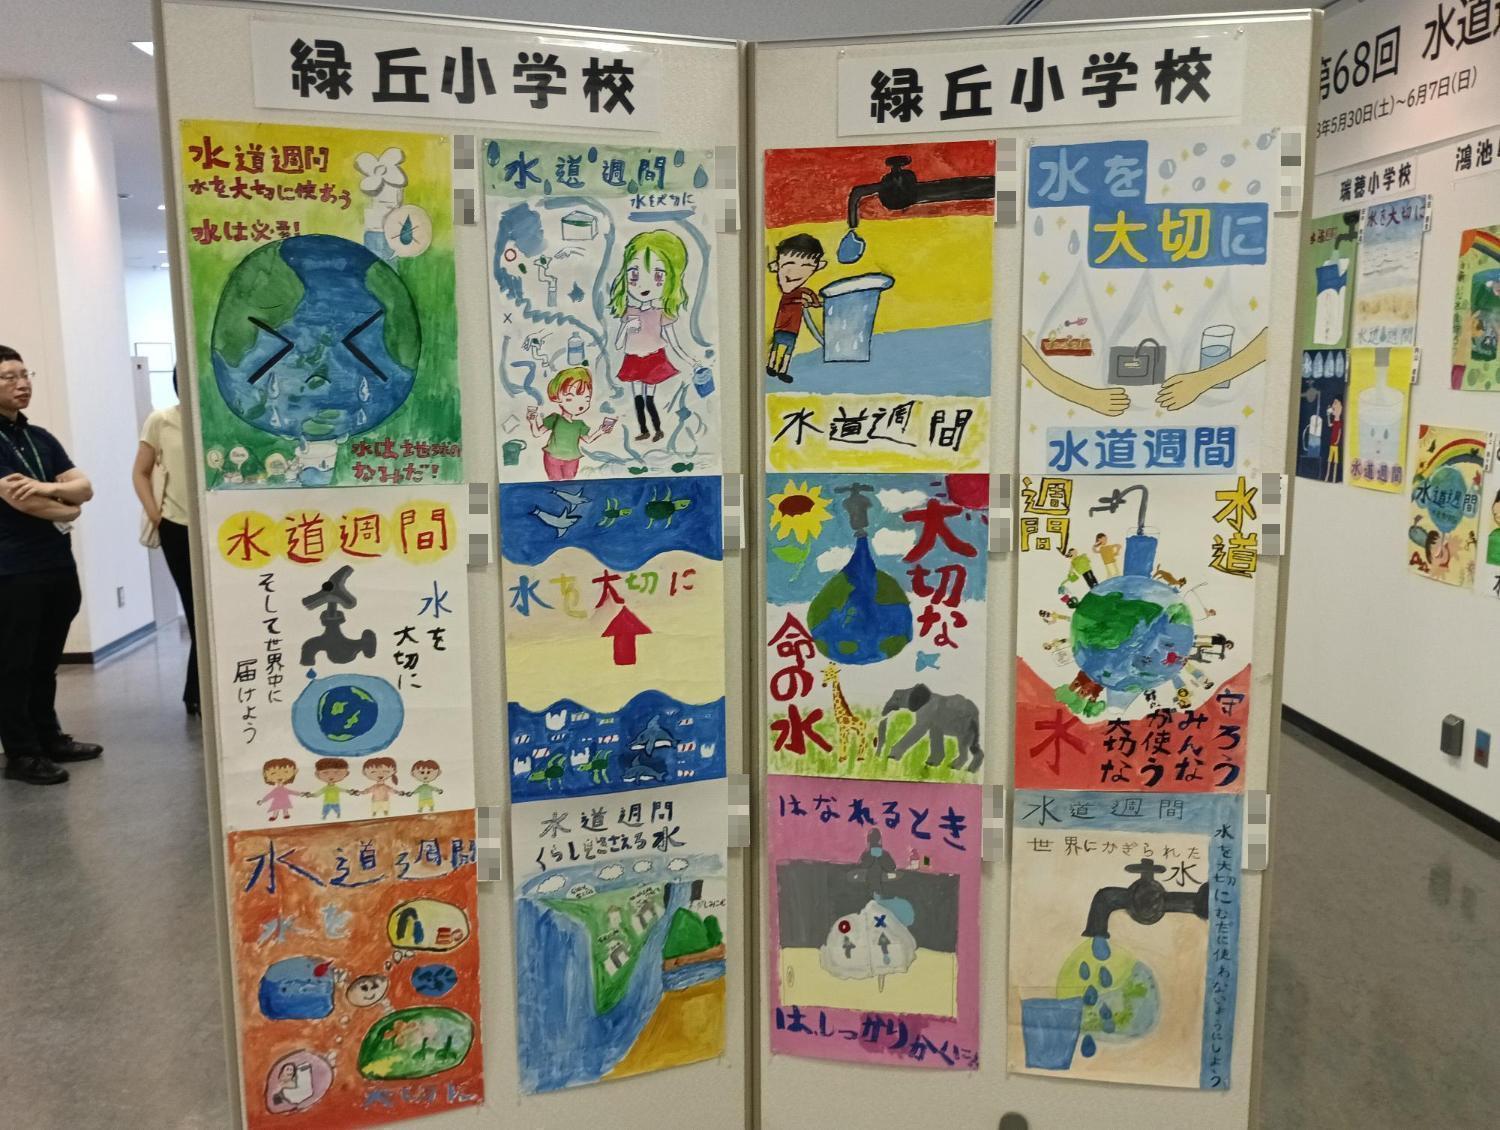 緑丘小学校
緑丘小学校
水道週間
水を大切に使おう
水は必要!
水は地球の
なみだ!
水道週間
水を大切に
水道週間
水を
大切に
そして世界中に
届けよう
水を大切に
水道週間
水を
大切に
水道週間
くらしをささえる水
水道週間
水を
大切に
水道週間
大切な
命の水
水道
週間
守ろう
みんな
が使う
大切な
水
はなれるとき
は、しっかりかくに
水道週間
世界にかぎられた
水
水を大切にむだに使わないようにしよう
第68回 水道週
8年5月30日(土)~6月7日(日)
瑞穂小学校
鴻池
水を大切に
水道週間
水道週間
水道週間